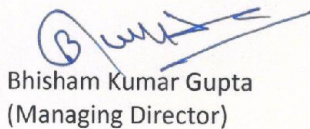 Bhisham Kumar Gupta
(Managing Director)